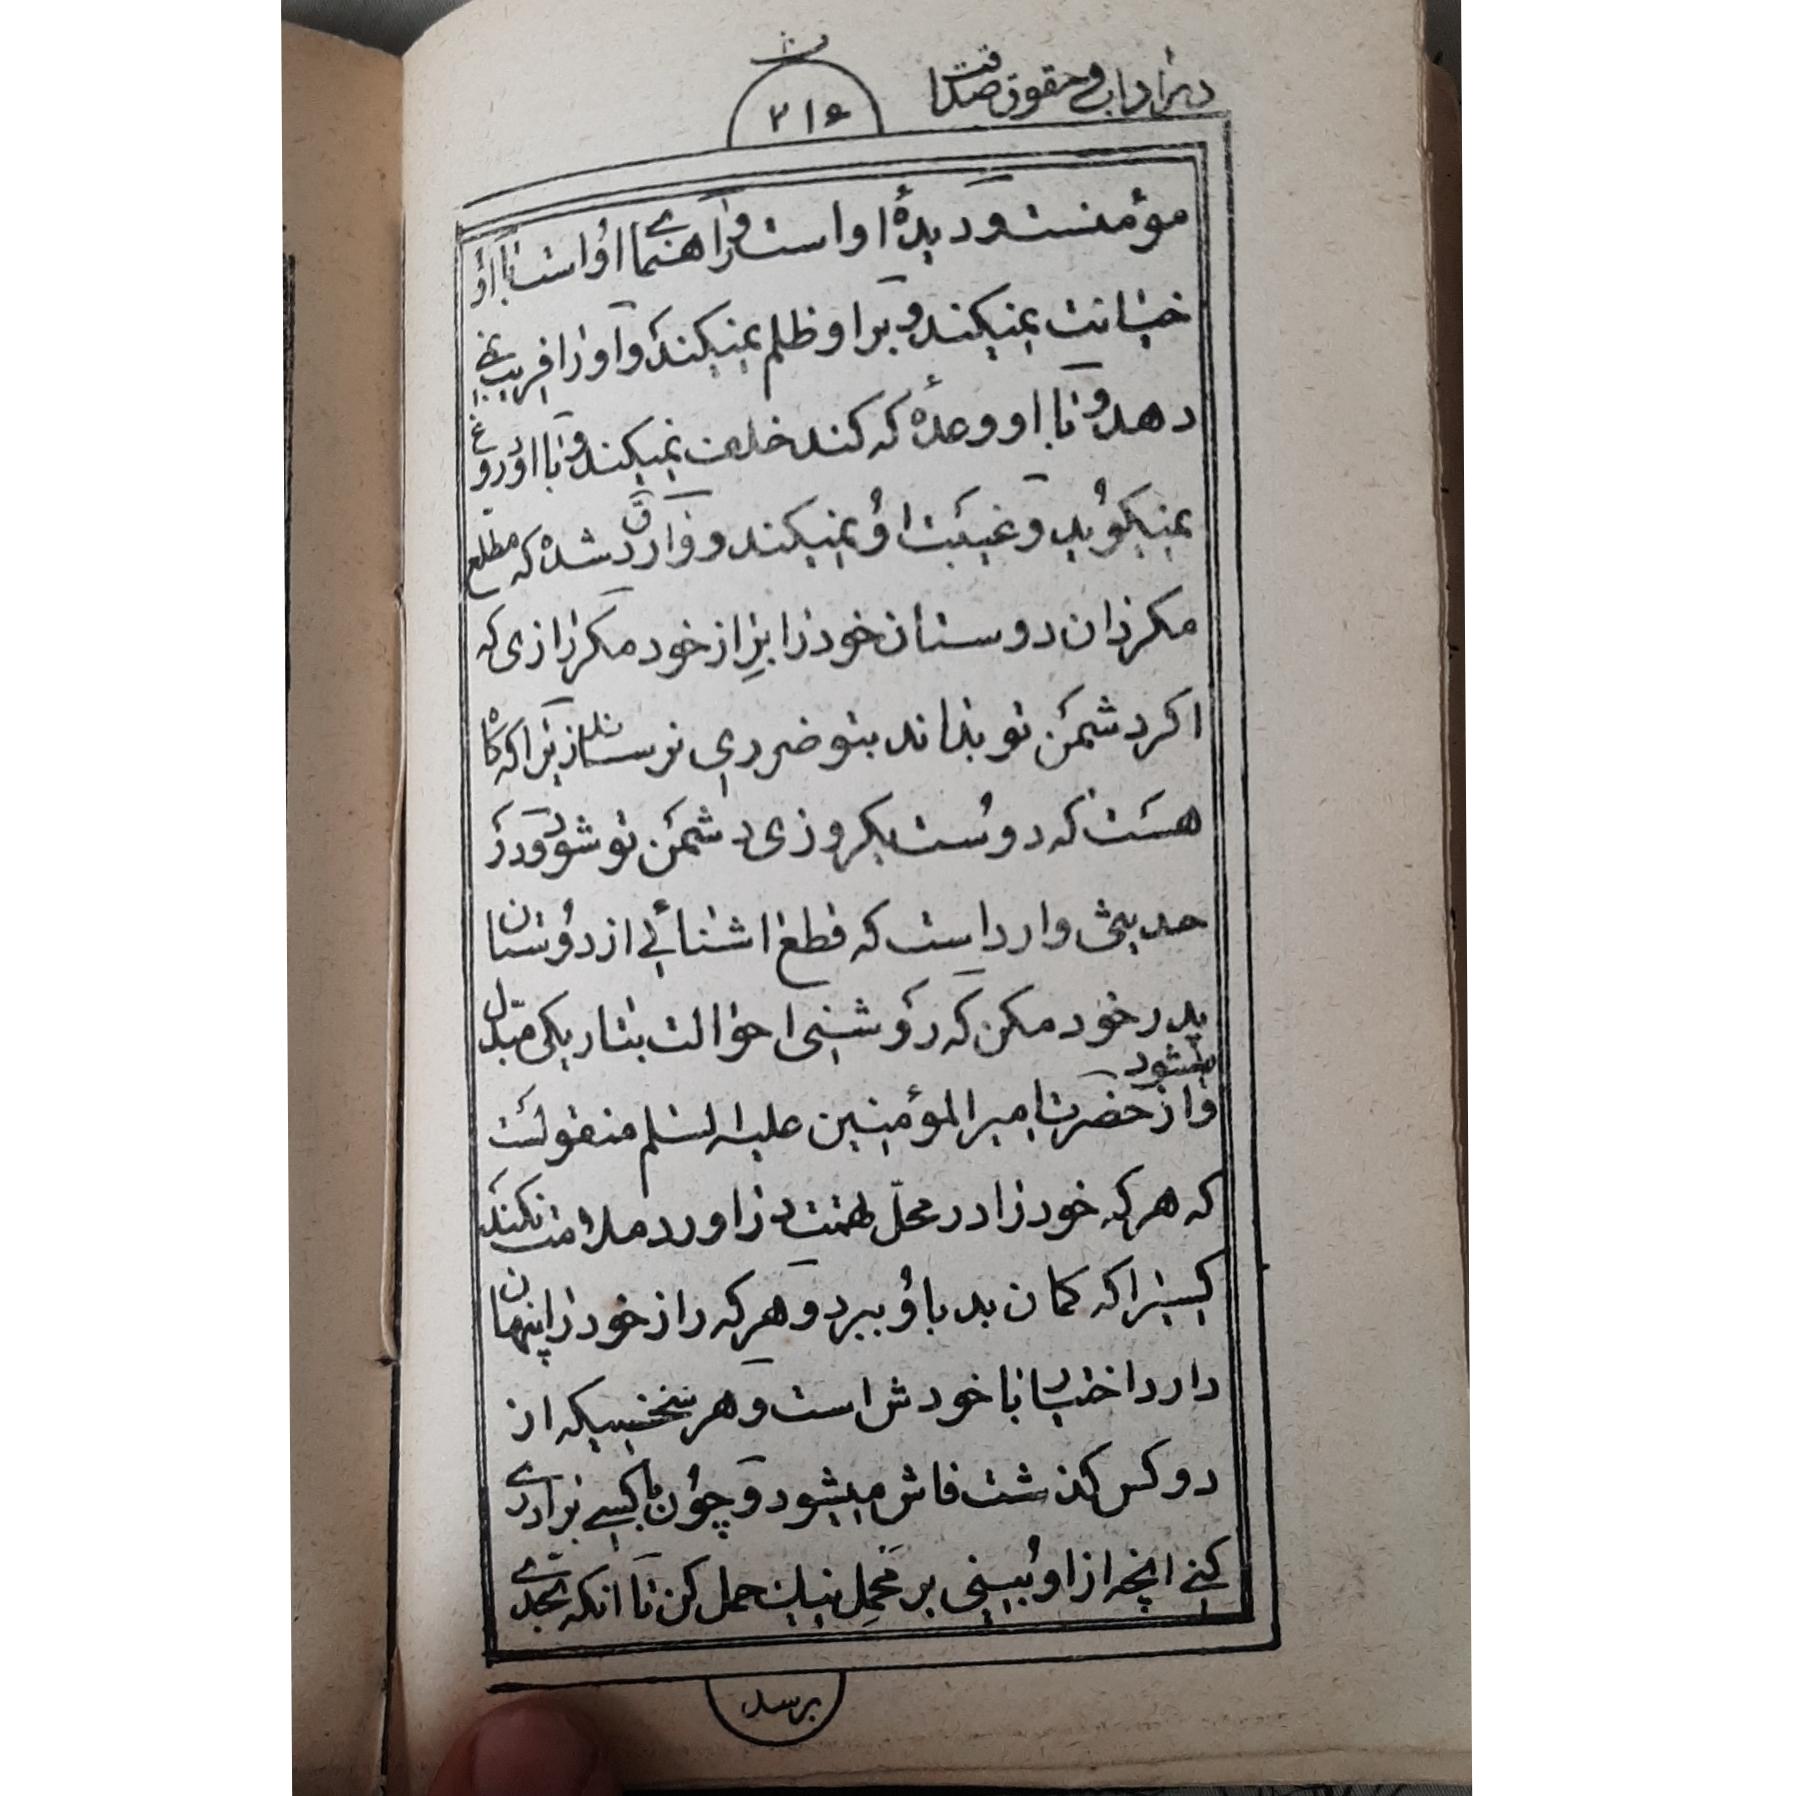 در آداب و حقوق صداقت
۲۱۶
مؤمنست و دیدهٔ او است و راهنمای او است با او
خیانت نمیکند و بر او ظلم نمیکند و او را فریب نمی
دهد و با او وعده که کند خلف نمیکند و با او دروغ
نمیگوید و غیبت او نمیکند و وارد شده که مطلع
مگردان دوستان خود را بر از خود مگر رازی که
اگر دشمن تو بداند بتو ضرری نرساند زیرا که گاه
هست که دوست یکروزی دشمن تو شود و در
حدیثی وارد است که قطع اشنائی از دوستان
پدر خود مکن که روشنی احوالت بتاریکی مبدل
میشود
و از حضرت امیر المؤمنین علیه السلم منقولست
که هر که خود را در محل تهمت در اورد ملامت نکند
کسیرا که گمان بد باو ببرد و هر که راز خود را پنهان
دارد اختیار با خودش است و هر سخنیکه از
دو کس گذشت فاش میشود و چون با کسی برادری
کنی انچه از او ببینی بر محمل نیک حمل کن تا انکه بحدی
برسد